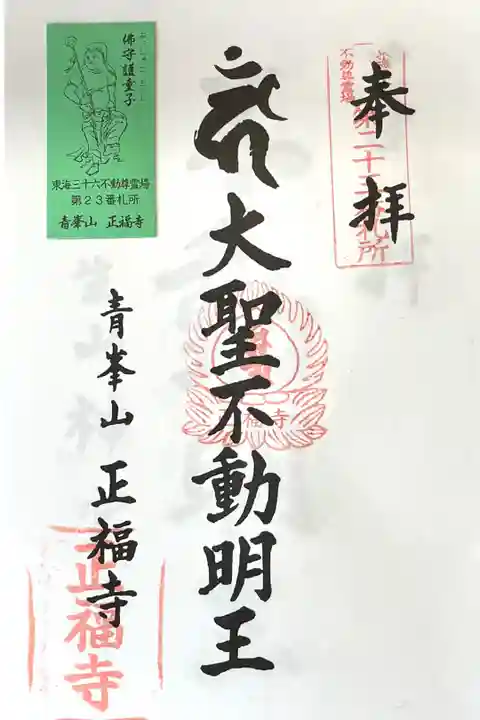 奉拝
不動尊霊場
第二十三番札所
大聖不動明王
正福寺
青峯山 正福寺
正福寺
佛守護童子
東海三十六不動尊霊場
第23番札所
青峯山 正福寺